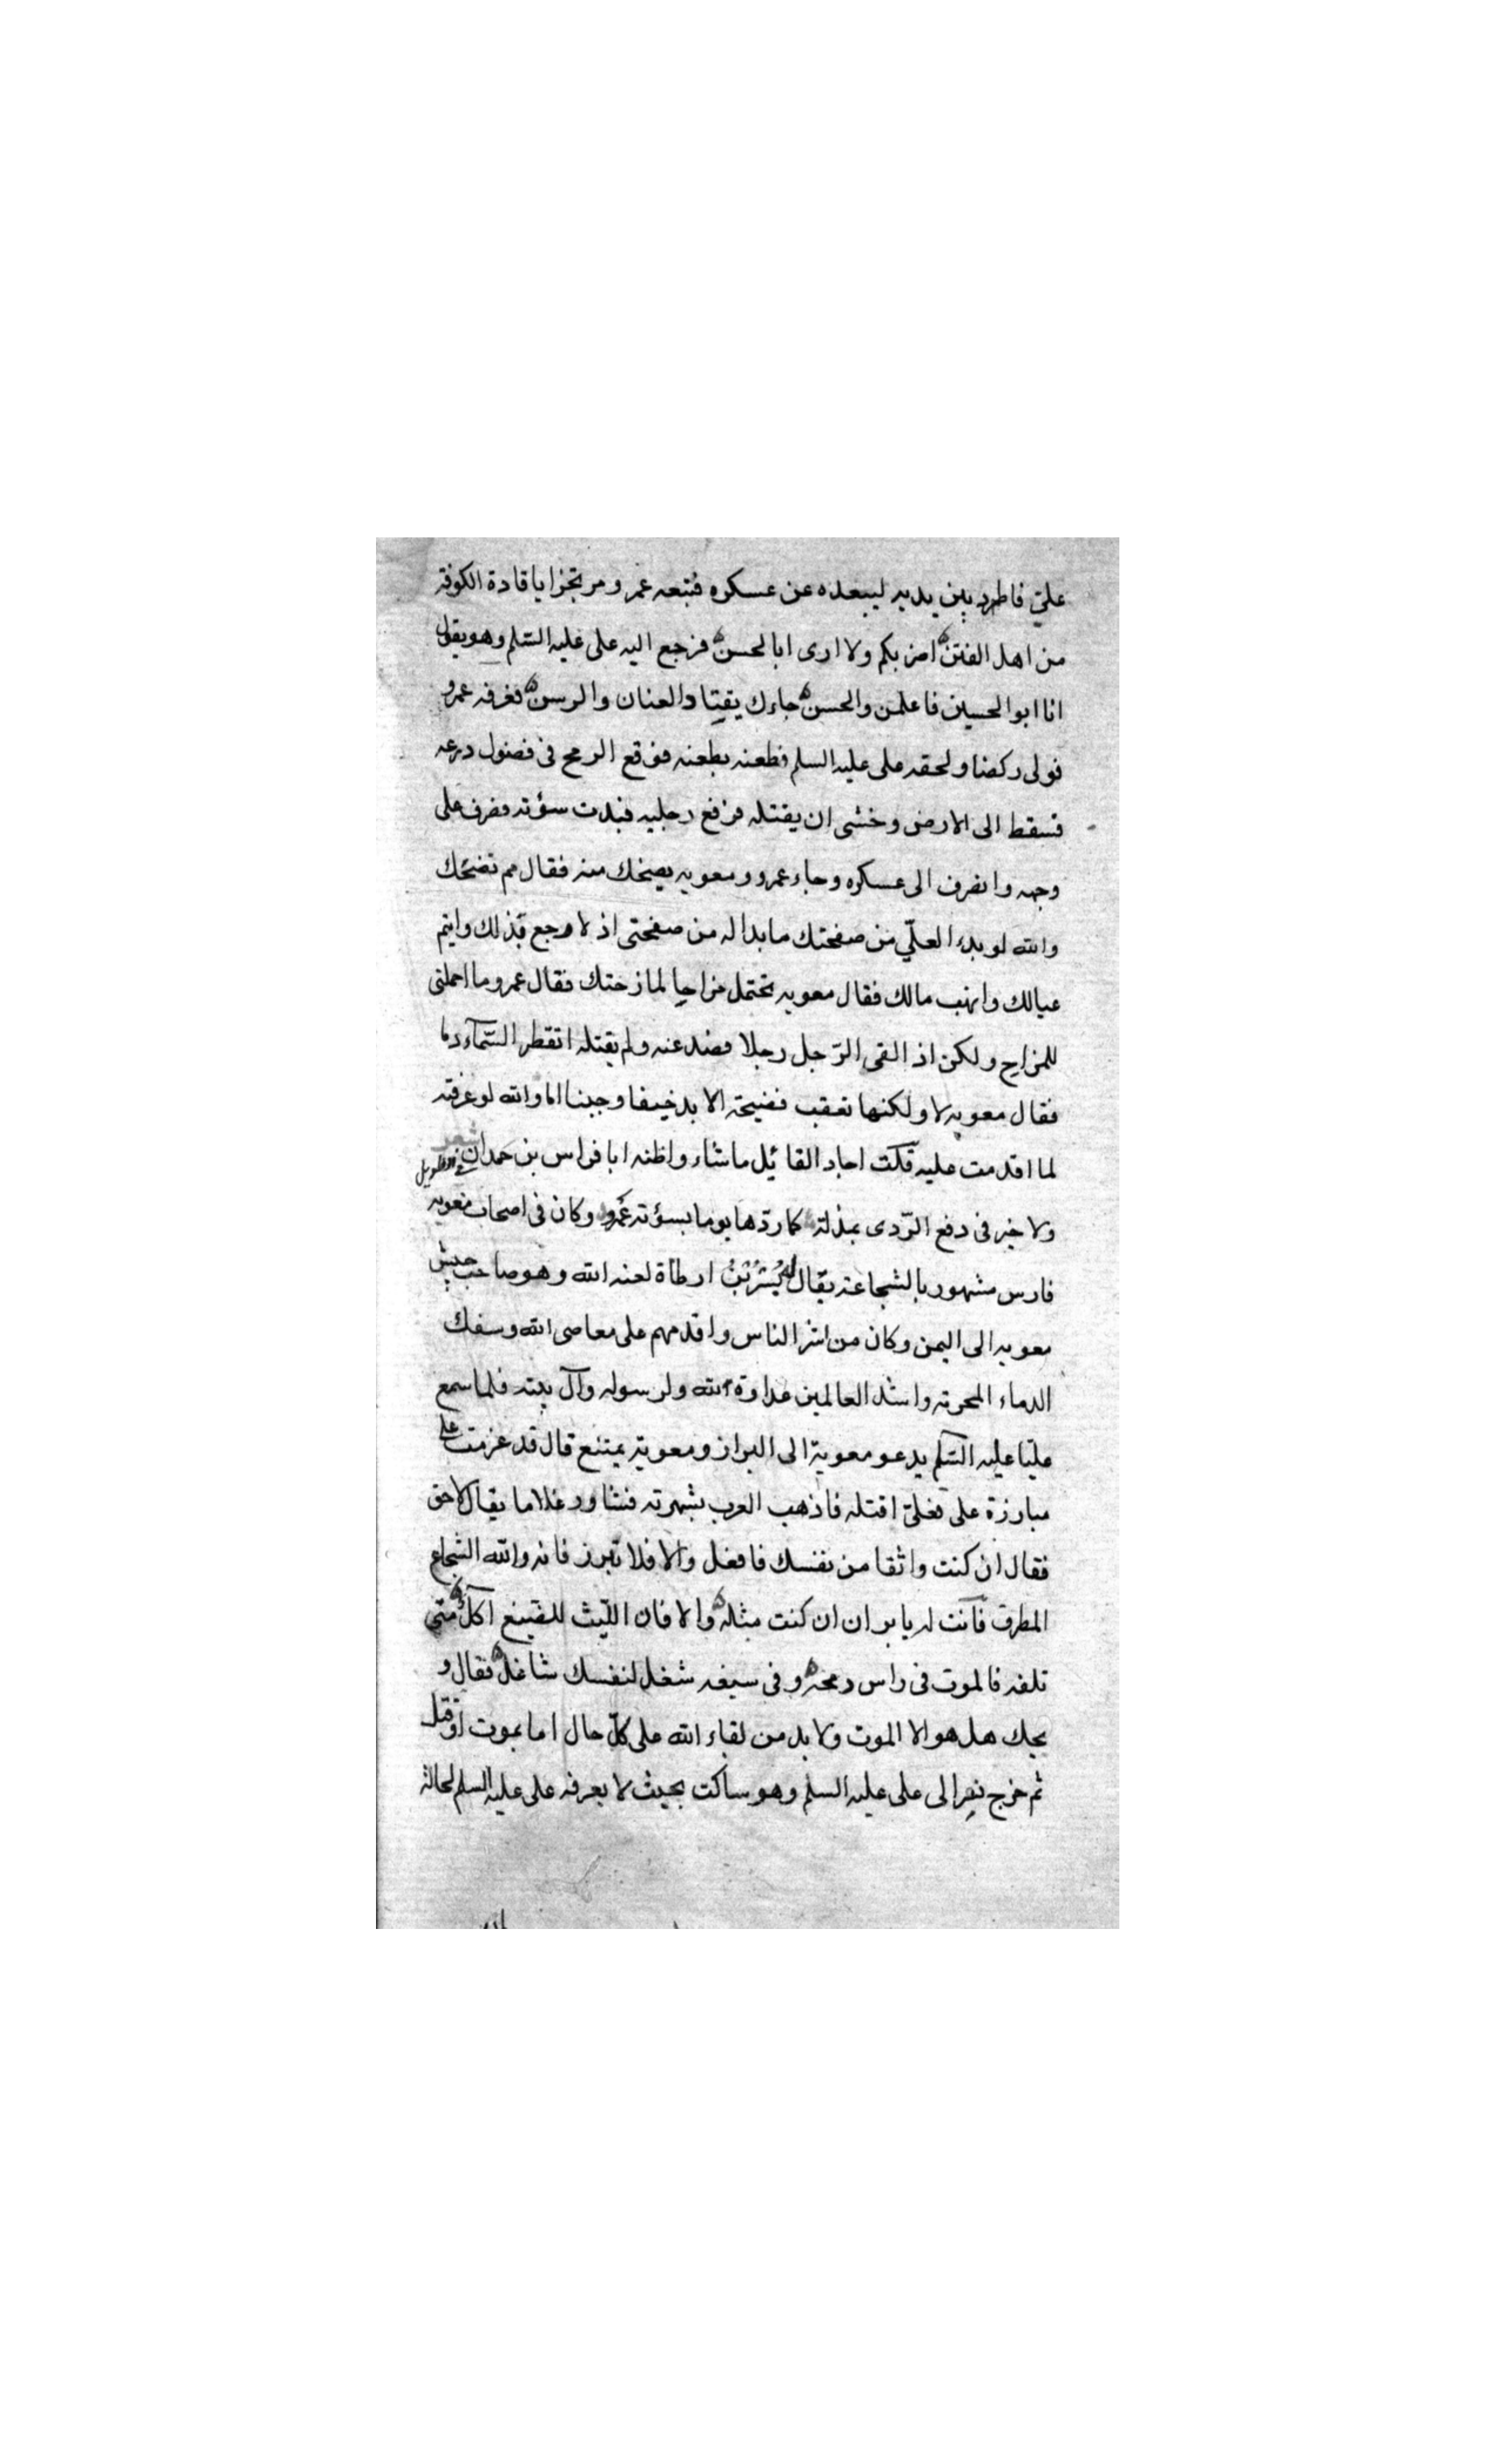 علىّ فاطرد بين يديه ليبعده عن عسكره فتبعه عمرو مرتجزا يا قادة الكوفة
من اهل الفتن اضربكم ولا ارى ابا الحسن فرجع اليه على عليه السّلم وهو يقول
انا ابو الحسين فاعلمن والحسن جاءك يقتاد العنان والرسن فعرفه عمرو
فولى ركضا ولحقه على عليه السلم فطعنه بطعنه فوقع الرمح فى فضول درعه
فسقط الى الارض وخشى ان يقتله فرفع رجليه فبدت سؤته فصرف على
وجهه وانصرف الى عسكره وجاء عمرو ومعويه يضحك منه فقال مم تضحك
والله لو بدء العلّي من صفحتك ما بدا له من صفحتى اذ لاوجع قذلك وايتم
عيالك وانهب مالك فقال معويه تحتمل مزاحا لمازحتك فقال عمرو ما احملنى
للمزاح ولكن اذ القى الرّجل رجلا فصد عنه ولم يقتله اتقطر السّمآء دما
فقال معويه لا ولكنها تعقب فضيحة الابد خيفا وجبنا اما والله لو عرفته
لما اقدمت عليه قلت اجاد القائيل ما شاء واظنه ابا فراس بن حمدان شعر من الطويل
ولا خير فى دفع الرّدى بمذلة كما ردّها يوما بسؤته عمرو وكان فى اصحاب معويه
فارس مشهور بالشجاعة يقال له بُسْرُ بْنُ ارطاة لعنه الله وهو صاحب جيش
معويه الى اليمن وكان من اشر الناس واقدمهم على معاصى الله وسفك
الدماء المحرمة واشد العالمين عداوة لله ولرسوله وآل بيته فلما سمع
عليّا عليه السّلم يدعو معوية الى البراز ومعوية يمتنع قال قد عزمت على
مبارزة على فعلىّ اقتله فاذهب العرب بشهرته فشاور غلاما يقال لاحق
فقال ان كنت واثقا من نفسك فافعل والا فلا تبرز فانه والله الشجاع
المطرق فانت له يا بر ان ان كنت مثله والا فان اللّيث للضيغ آكل متى
تلقه فالموت فى راس رمحه وفى سيفه شغل لنفسك شاغل فقال و
يحك هل هو الا الموت ولا بد من لقاء الله على كلّ حال اما بموت او قتل
ثم خرج بسر الى على عليه السلم وهو ساكت بحيث لا يعرفه على عليه السلم لحالة